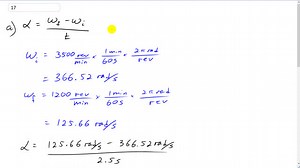 17
a) α = ω_f - ω_i / t
ω_i = 3500 rev/min × 1 min/60 s × 2π rad/rev
= 366.52 rad/s
ω_f = 1200 rev/min × 1 min/60 s × 2π rad/rev
= 125.66 rad/s
α = 125.66 rad/s - 366.52 rad/s / 2.5 s